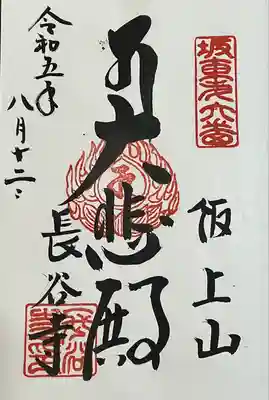 坂東第六番
飯上山
大悲殿
長谷寺
令和五年
八月十二日